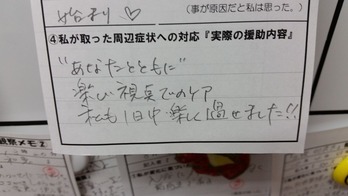 (事が原因だと私は思った。)
④私が取った周辺症状への対応『実際の援助内容』
"あなたとともに"
楽しい視点でのケア
私も1日中楽しく過せました!!